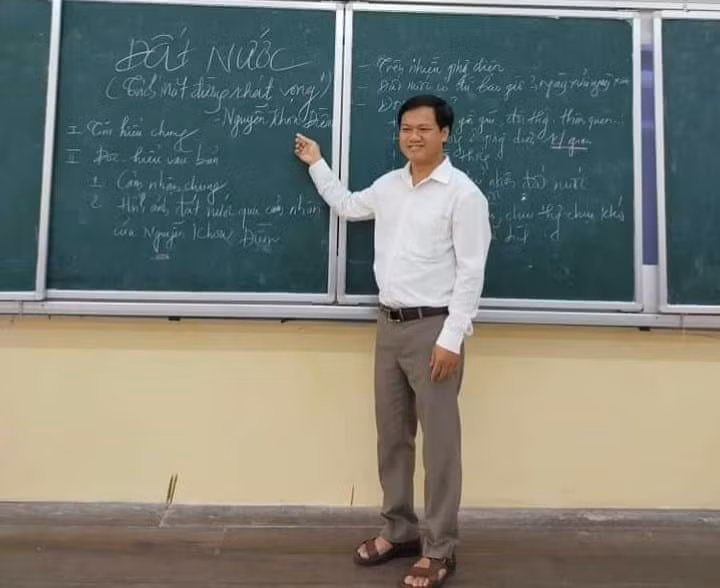 ĐẤT NƯỚC
(Trích Mặt đường khát vọng)
- Nguyễn Khoa Điềm
I Tìm hiểu chung
II Đọc - hiểu văn bản
1 Cảm nhận chung
2 Hình ảnh đất nước qua cảm nhận
của Nguyễn Khoa Điềm
- Trên nhiều phương diện
- Đất nước có từ bao giờ? ngày xửa ngày xưa
- Đ
gần gũi, đời thg, thân quen...
ở phg diện t/gian
nhân đất nước
chịu thg chịu khó